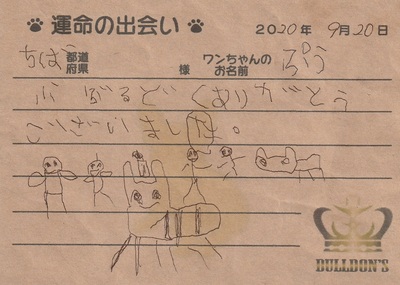 運命の出会い 2020年 9月20日
ちば 都道府県 様 ワンちゃんのお名前
ぶるどくありがとう
ございました。
BULLDON'S